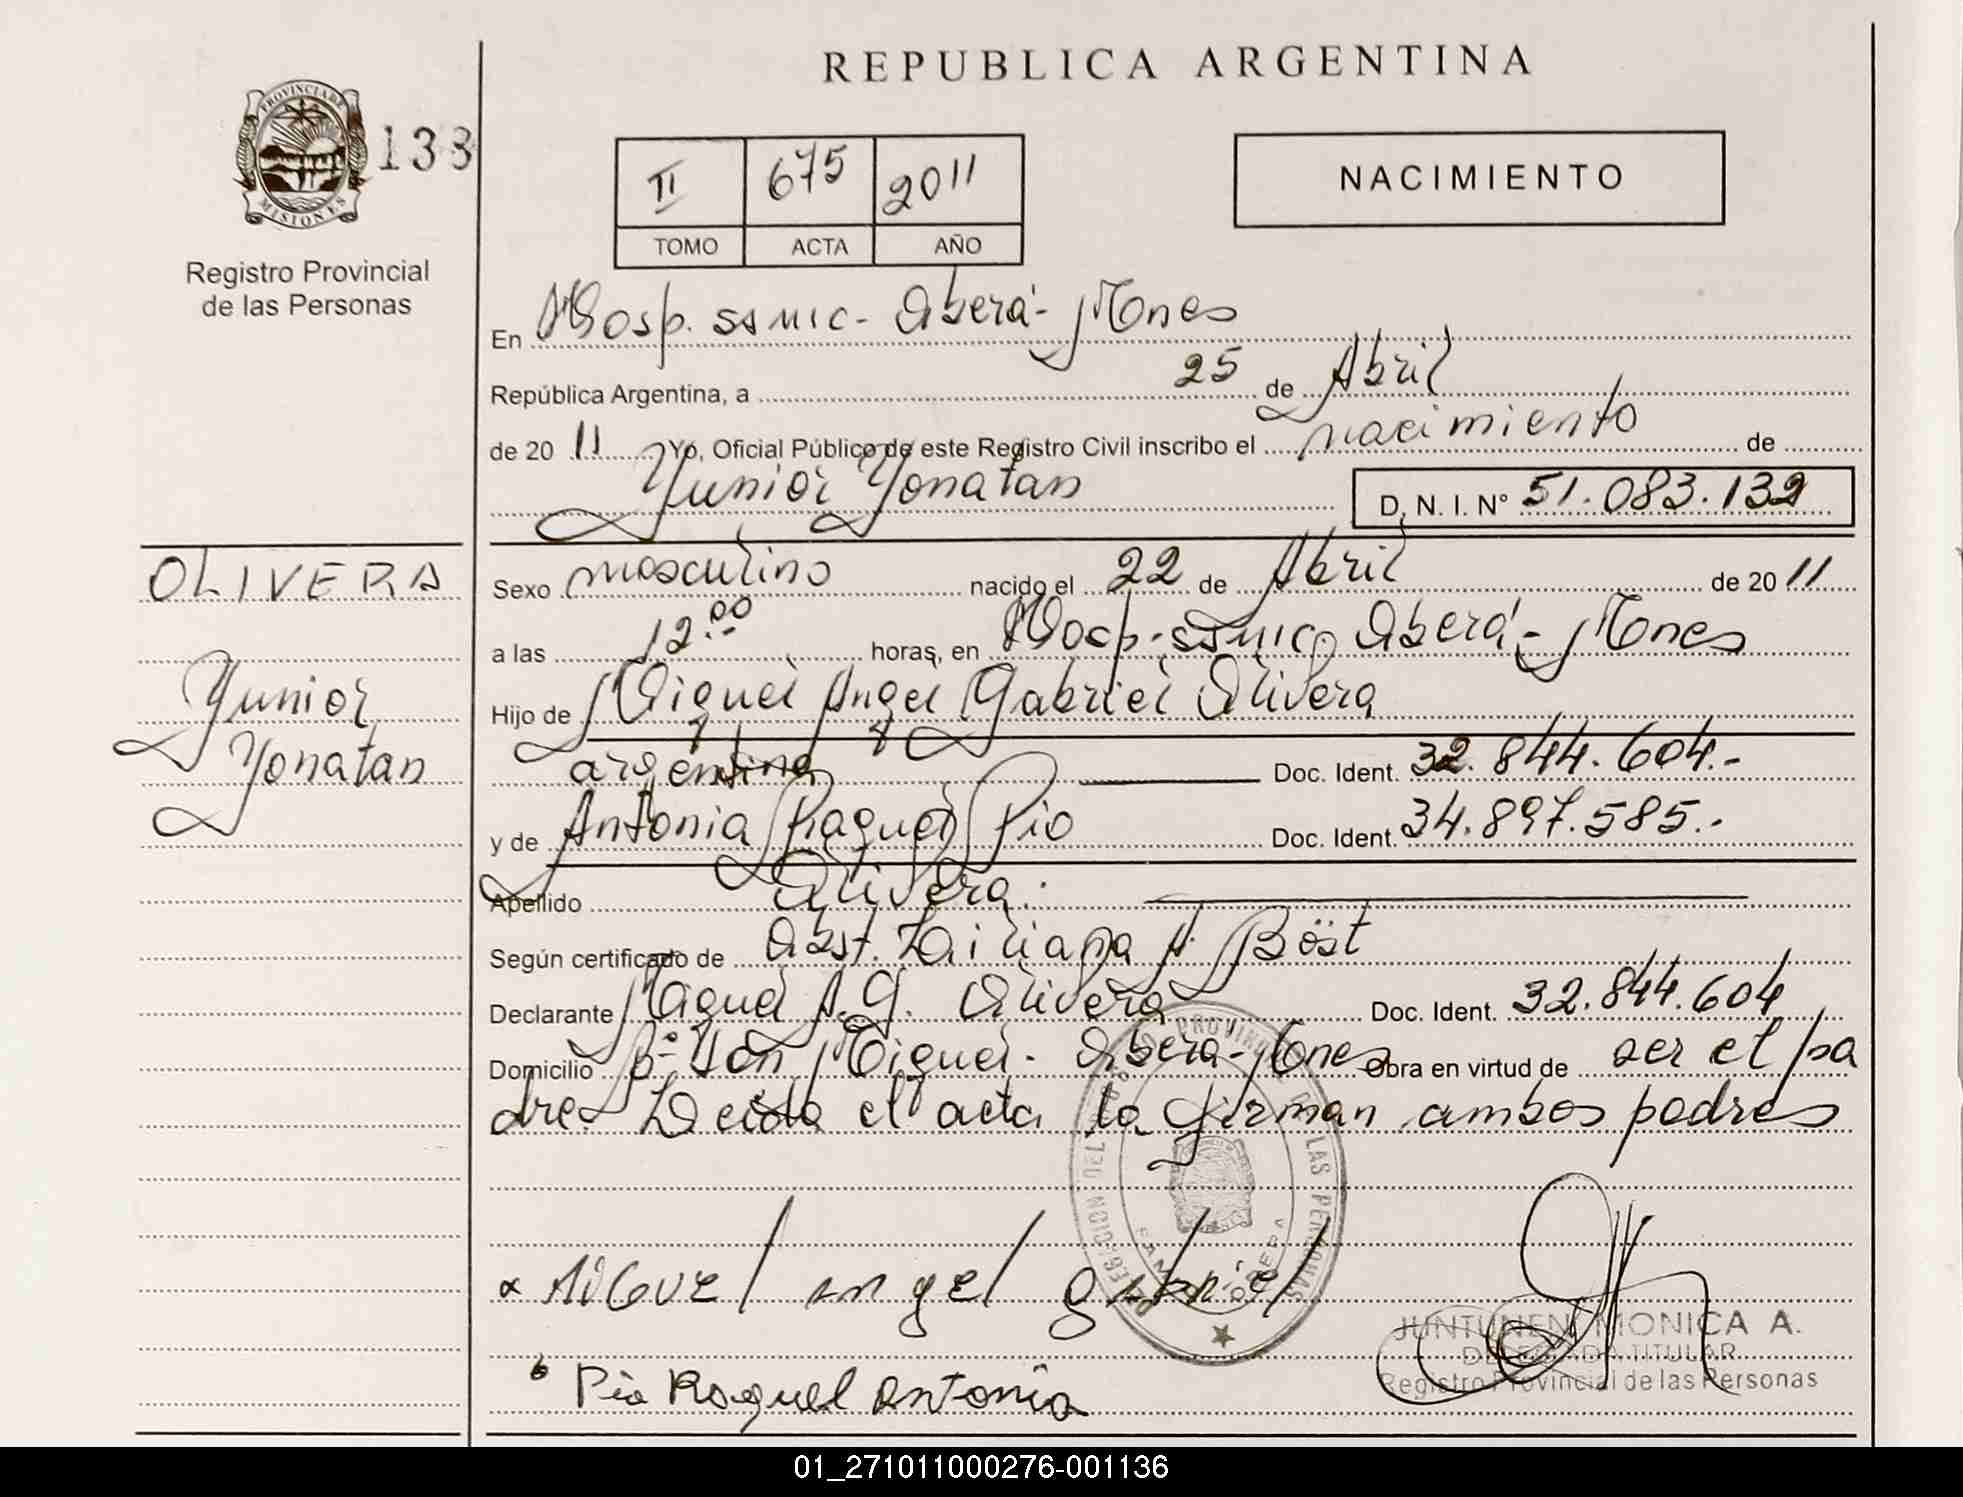 REPUBLICA ARGENTINA
PROVINCIA DE
MISIONES
133
Registro Provincial
de las Personas
II 675 2011
TOMO ACTA AÑO
NACIMIENTO
En Hosp. ssmic- Oberá- Mones
República Argentina, a 25 de Abril
de 20 11 Yo, Oficial Público de este Registro Civil inscribo el nacimiento de
Yunior Yonatan D. N. I. N° 51.083.132
OLIVERA
Yunior
Yonatan
Sexo masculino nacido el 22 de Abril de 20 11
a las 12.00 horas, en Hosp. ssmic, Oberá- Mones
Hijo de Miguel Angel Gabriel Olivera
argentina Doc. Ident. 32.844.604.-
y de Antonia Raquel Pio Doc. Ident. 34.897.585.-
Apellido Olivera.
Según certificado de Obst. Liliana A. Böst
Declarante Miguel A. G. Olivera Doc. Ident. 32.844.604
Domicilio B° Von Miguel- Oberá- Mones Obra en virtud de ser el pa
dre. Leida el acta la firman ambos padres
Miguel angel gabriel
Pio Raquel Antonia
JUNTUNEN MONICA A.
DELEGADA TITULAR
Registro Provincial de las Personas
01_271011000276-001136